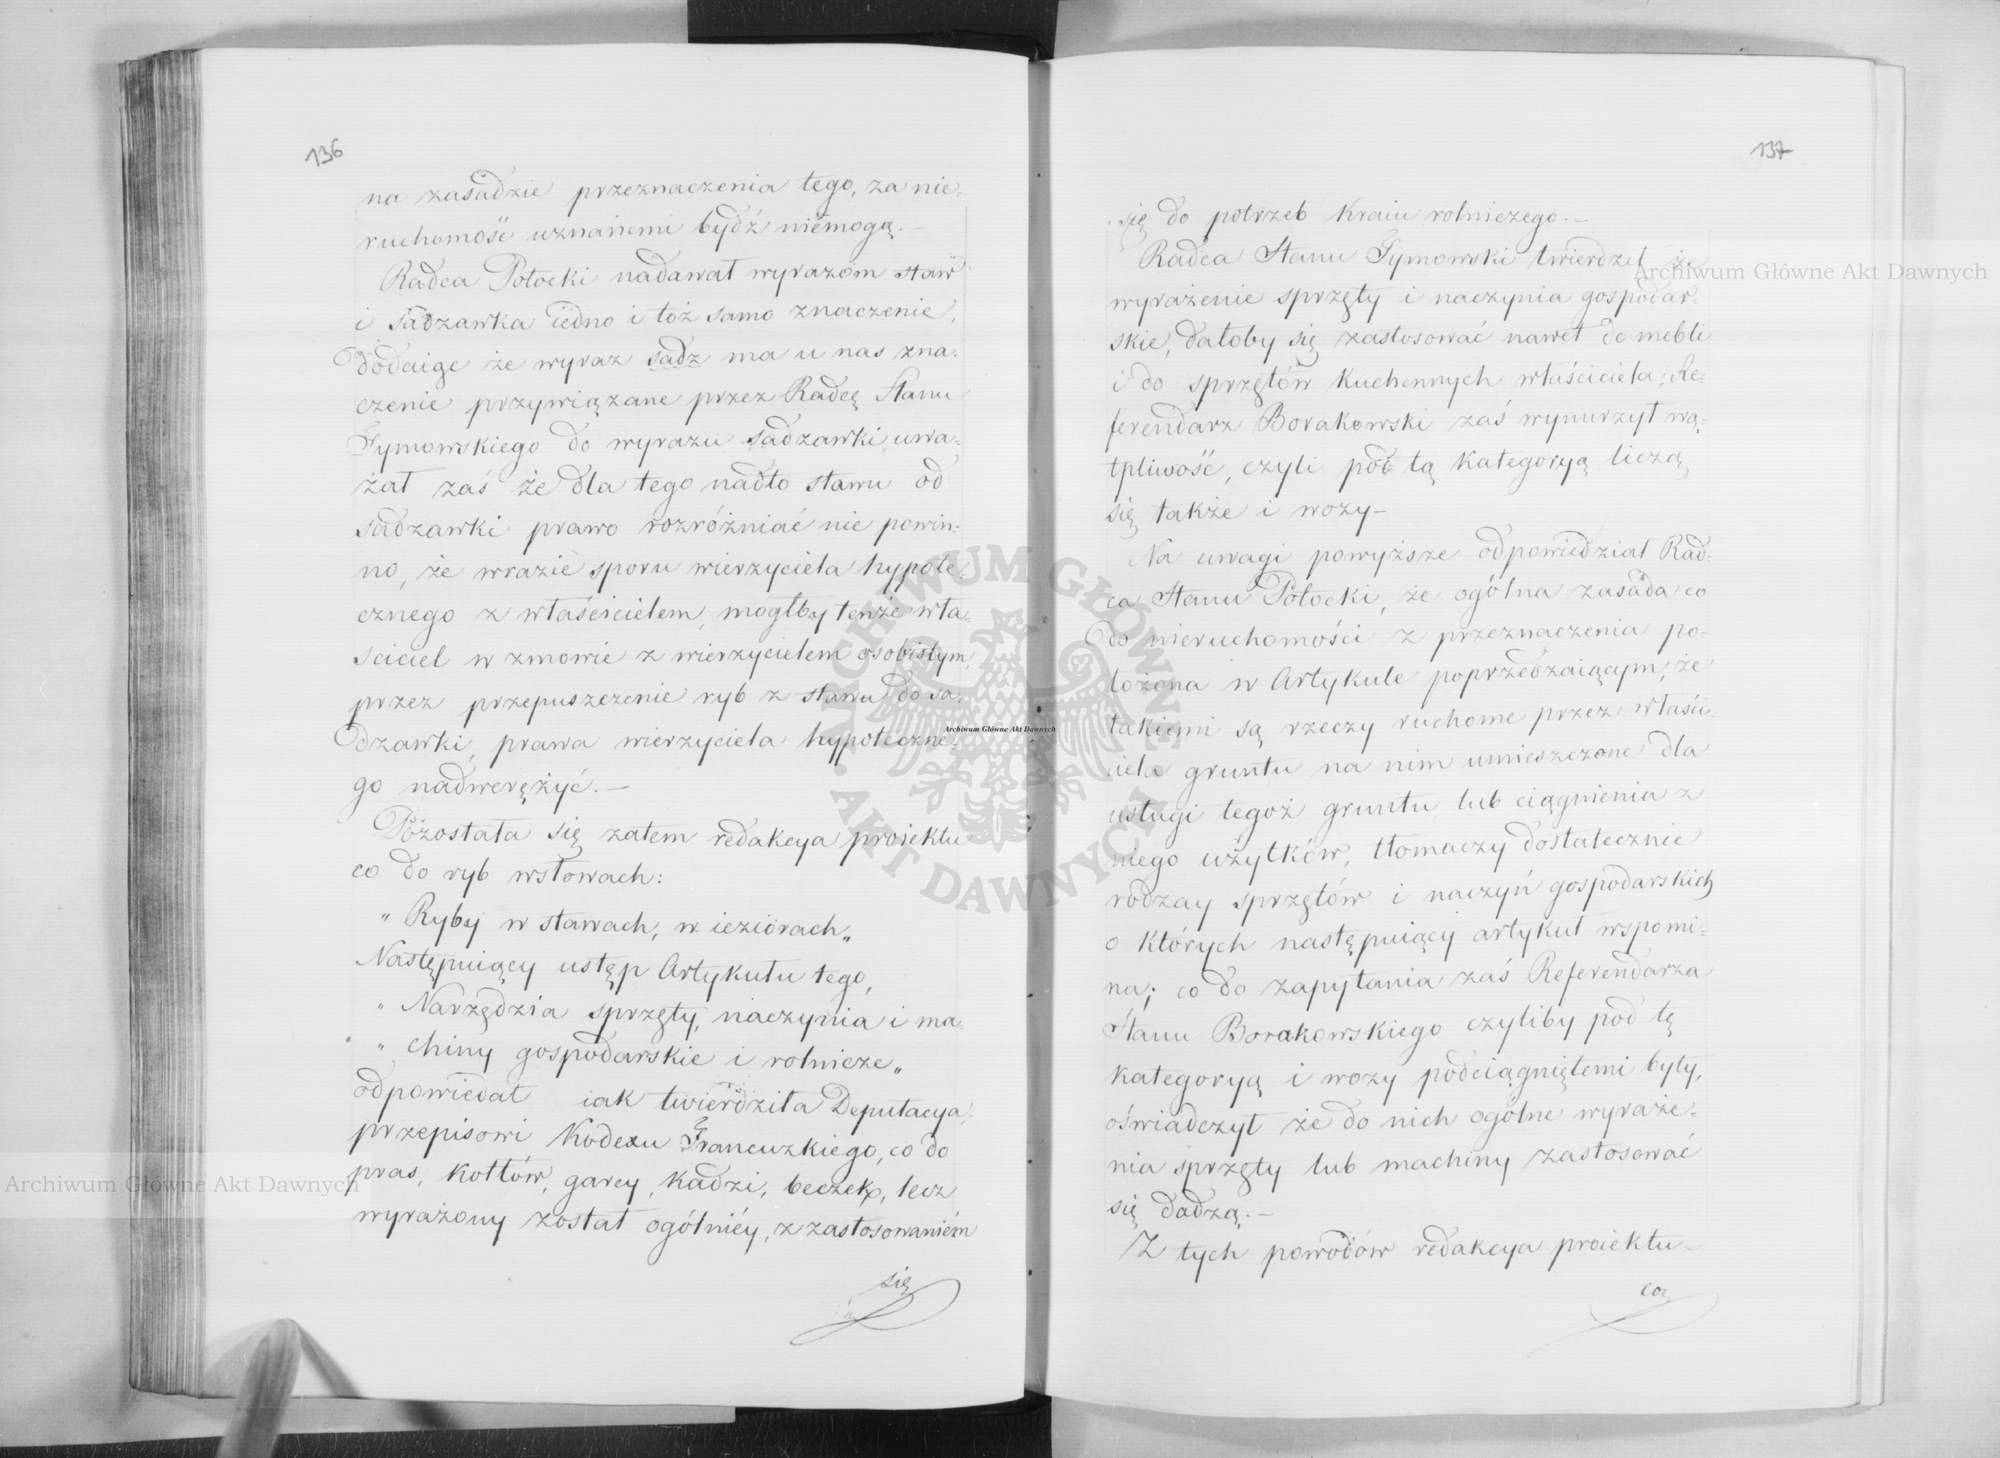 136
na zasadzie przeznaczenia tego, za nie-
ruchomość uznanemi bydź niemogą.—
Radca Potocki nadawał wyrazom staw
i sadzawka iedno i toż samo znaczenie,
dodaiąc że wyraz sadz ma u nas zna-
czenie przywiązane przez Radcę Stanu
Tymowskiego do wyrazu sadzawki, uwa-
żał zaś że dla tego nadto stawu od
sadzawki prawo rozróżniać nie powin-
no, że wrazie sporu wierzyciela hypote-
cznego z właścicielem, mogłby tenże wła-
ściciel w zmowie z wierzycielem osobistym,
przez przepuszczenie ryb z stawu do sa-
dzawki, prawa wierzyciela hypoteczne-
go nadwerężyć.—
Pozostała się zatem redakcya proiektu
co do ryb wsłowach:
„ Ryby w stawach, w ieziorach„
Następuiący ustęp Artykułu tego,
„ Narzędzia sprzęty, naczynia i ma-
„ chiny gospodarskie i rolnicze„
odpowiedał iak twierdziła Deputacya,
przepisowi Kodexu Francuzkiego, co do
pras, kotłów, garcy, kadzi, beczek, lecz
wyrażony został ogólniéy, z zastosowaniém
się
137
się do potrzeb Kraiu rolniczego.—
Radca Stanu Tymowski twierdził że
wyrażenie sprzęty i naczynia gospodar-
skie, dałoby się zastosować nawet do mebli
i do sprzętów kuchennych właściciela, Re-
ferendarz Borakowski zaś wynurzył wą-
tpliwość, czyli pod tą kategoryą liczą
się także i wozy—
Na uwagi powyższe odpowiedział Rad-
ca Stanu Potocki, że ogólna zasada co
do nieruchomości z przeznaczenia po-
łożona w Artykule poprzedzaiącym, że
takiemi są rzeczy ruchome przez właści-
ciela gruntu na nim umieszczone dla
usługi tegoż gruntu lub ciągnienia z
niego użytków, tłomaczy dostatecznie
rodzay sprzętów i naczyń gospodarskich
o których następuiący artykuł wspomi-
na; co do zapytania zaś Referendarza
Stanu Borakowskiego czyliby pod tę
kategoryą i wozy podciągniętemi były,
oświadczył że do nich ogólne wyraże-
nia sprzęty lub machiny zastosować
się dadzą.—
Z tych powodów redakcya proiektu
co
Archiwum Główne Akt Dawnych
Archiwum Główne Akt Dawnych
Archiwum Główne Akt Dawnych
ARCHIWUM GŁÓWNE AKT DAWNYCH